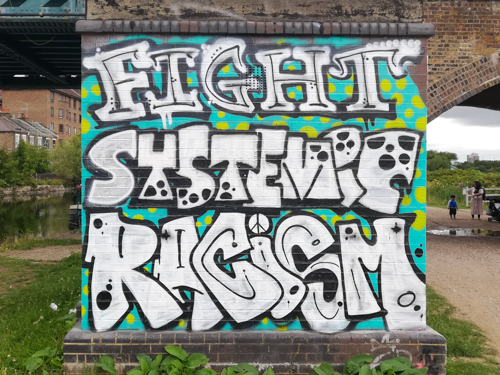 FIGHT
SYSTEMiC
RACiSM